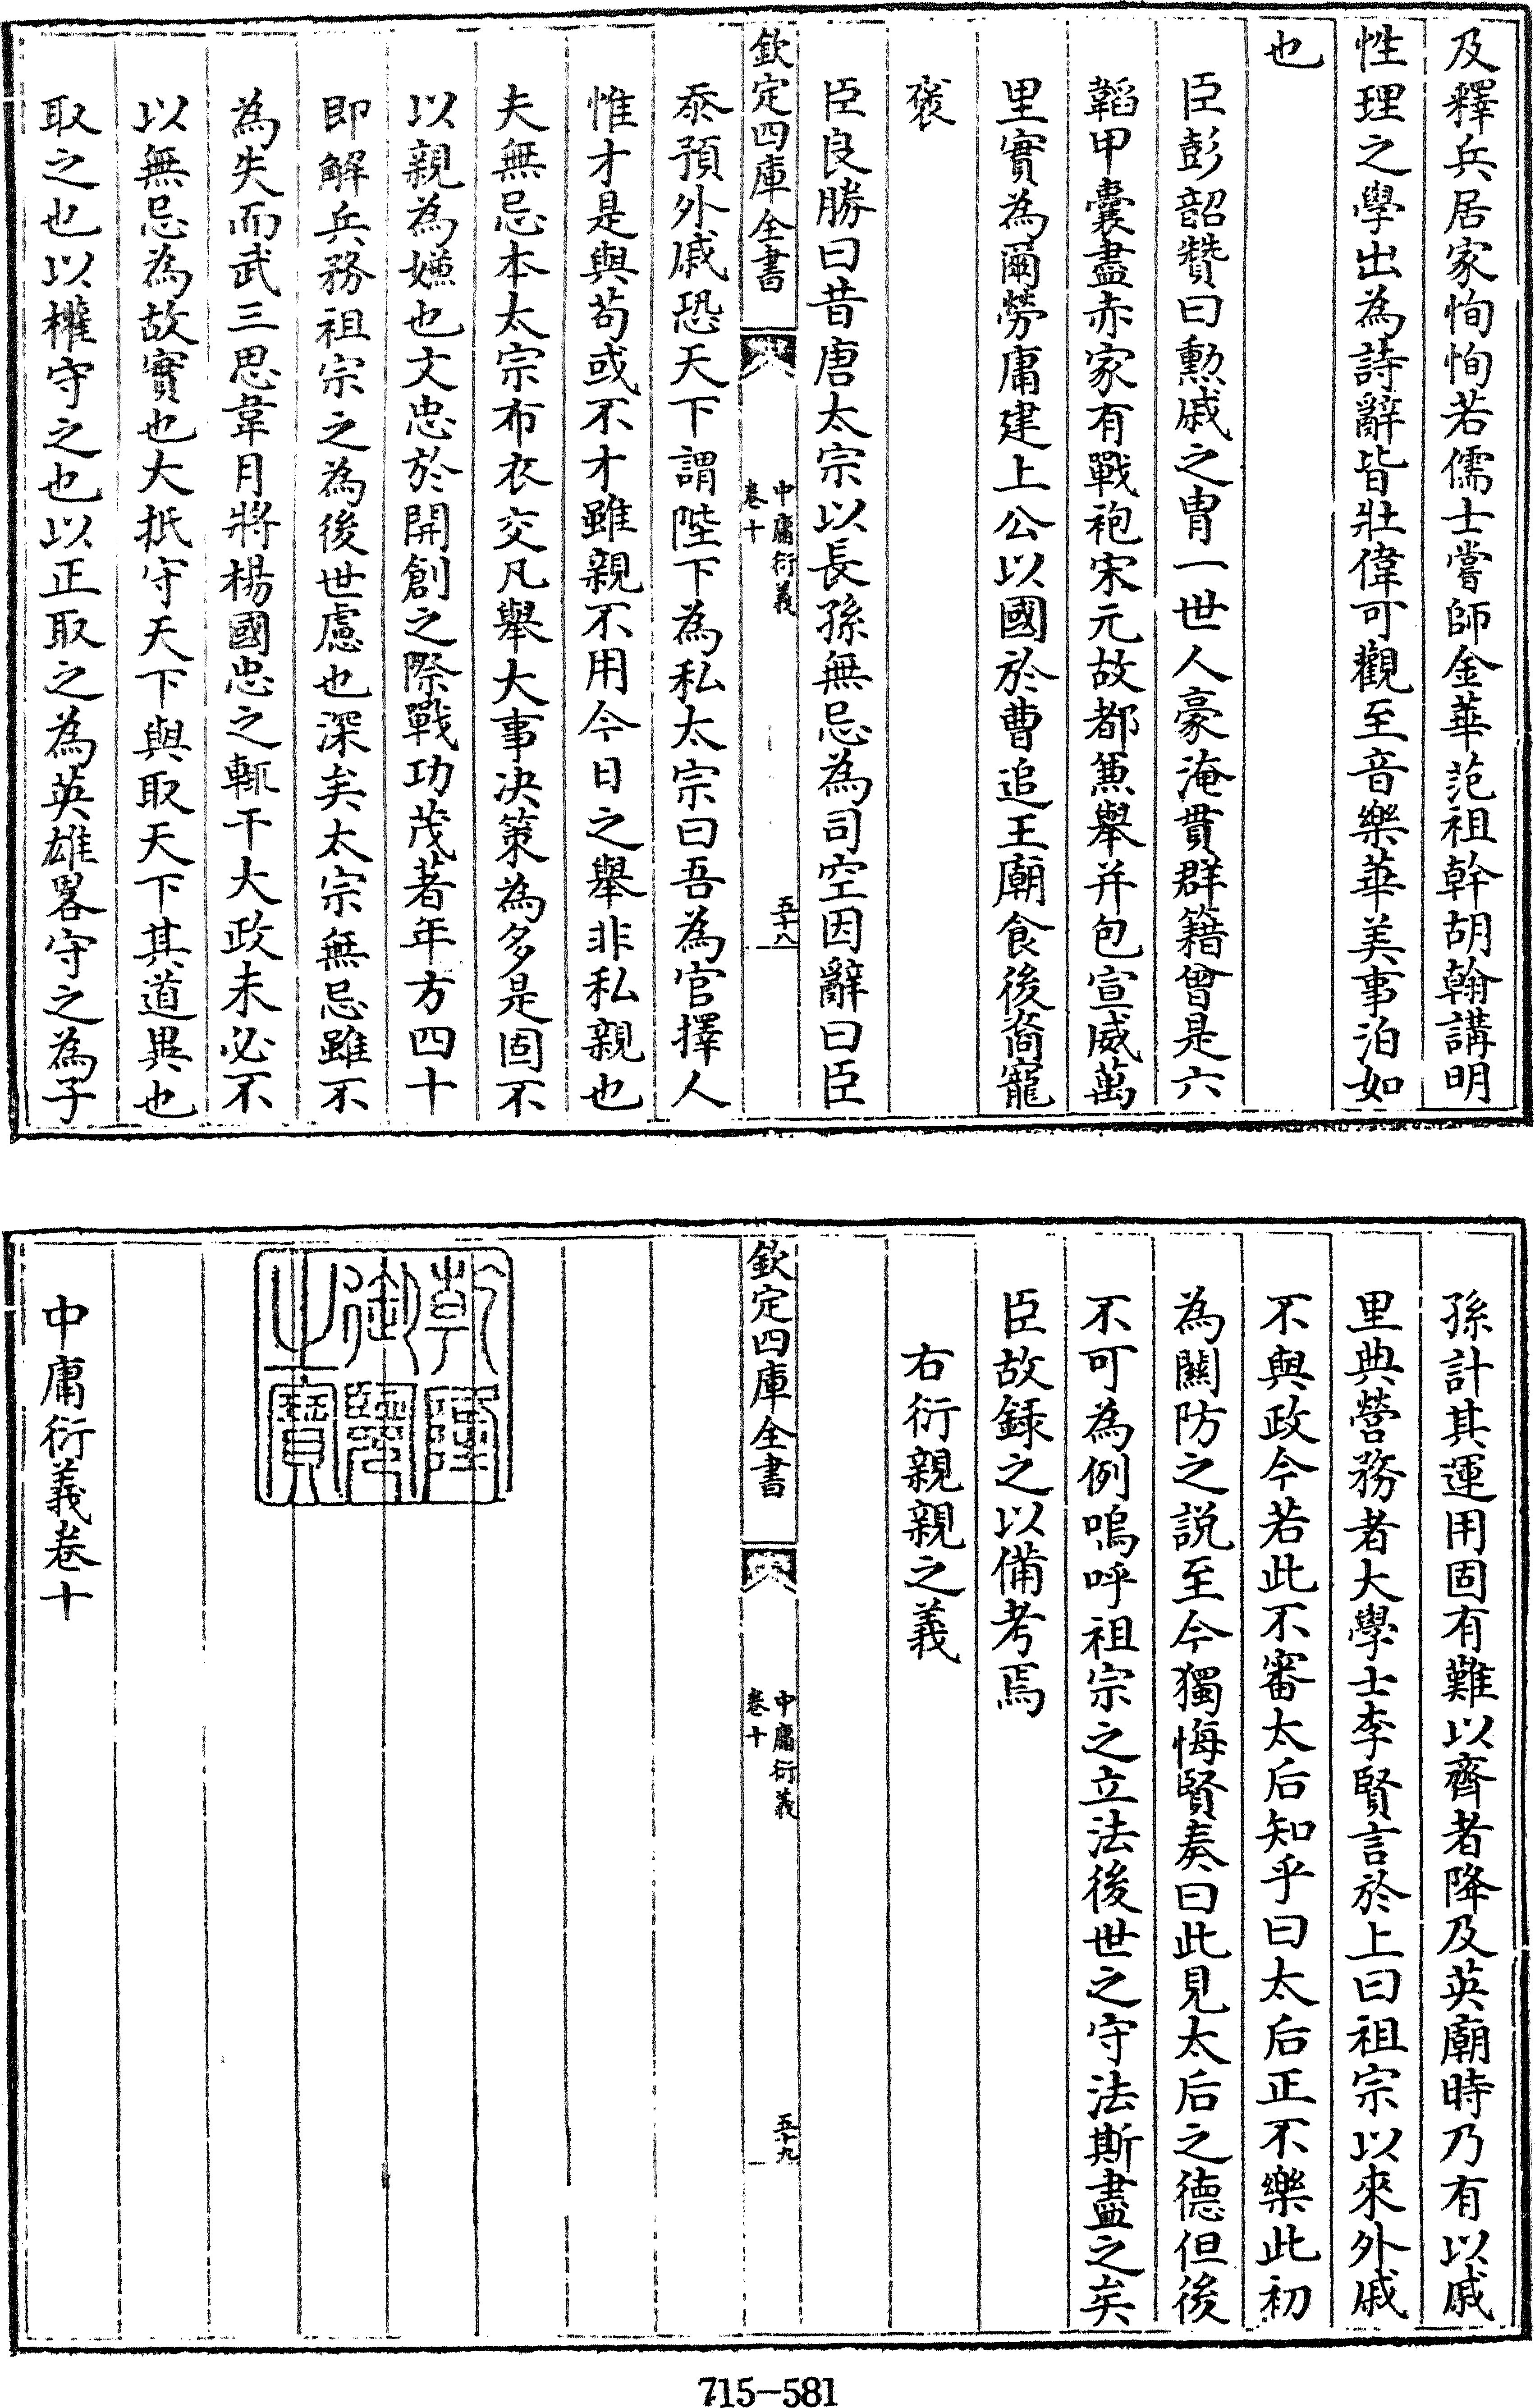 及釋兵居家恂恂若儒士嘗師金華范祖幹胡翰講明
性理之學出為詩辭皆壯偉可觀至音樂華美事泊如
也
臣彭韶贊曰勲戚之胄一世人豪淹貫群籍曾是六
韜甲囊盡赤家有戰袍宋元故都兼舉并包宣威萬
里實為爾勞庸建上公以國於曹追王廟食後裔寵
褒
臣良勝曰昔唐太宗以長孫無忌為司空因辭曰臣
欽定四庫全書
中庸衍義
卷十
五十八
忝預外戚恐天下謂陛下為私太宗曰吾為官擇人
惟才是與苟或不才雖親不用今日之舉非私親也
夫無忌本太宗布衣交凡舉大事決策為多是固不
以親為嫌也文忠於開創之際戰功茂著年方四十
即解兵務祖宗之為後世慮也深矣太宗無忌雖不
為失而武三思韋月將楊國忠之輒干大政未必不
以無忌為故實也大抵守天下與取天下其道異也
取之也以權守之也以正取之為英雄畧守之為子
孫計其運用固有難以齊者降及英廟時乃有以戚
里典營務者大學士李賢言於上曰祖宗以來外戚
不與政今若此不審太后知乎曰太后正不樂此初
為關防之說至今獨悔賢奏曰此見太后之德但後
不可為例嗚呼祖宗之立法後世之守法斯盡之矣
臣故録之以備考焉
右衍親親之義
欽定四庫全書
中庸衍義
卷十
五十九
乾隆
御覽
之寶
中庸衍義卷十
715-581